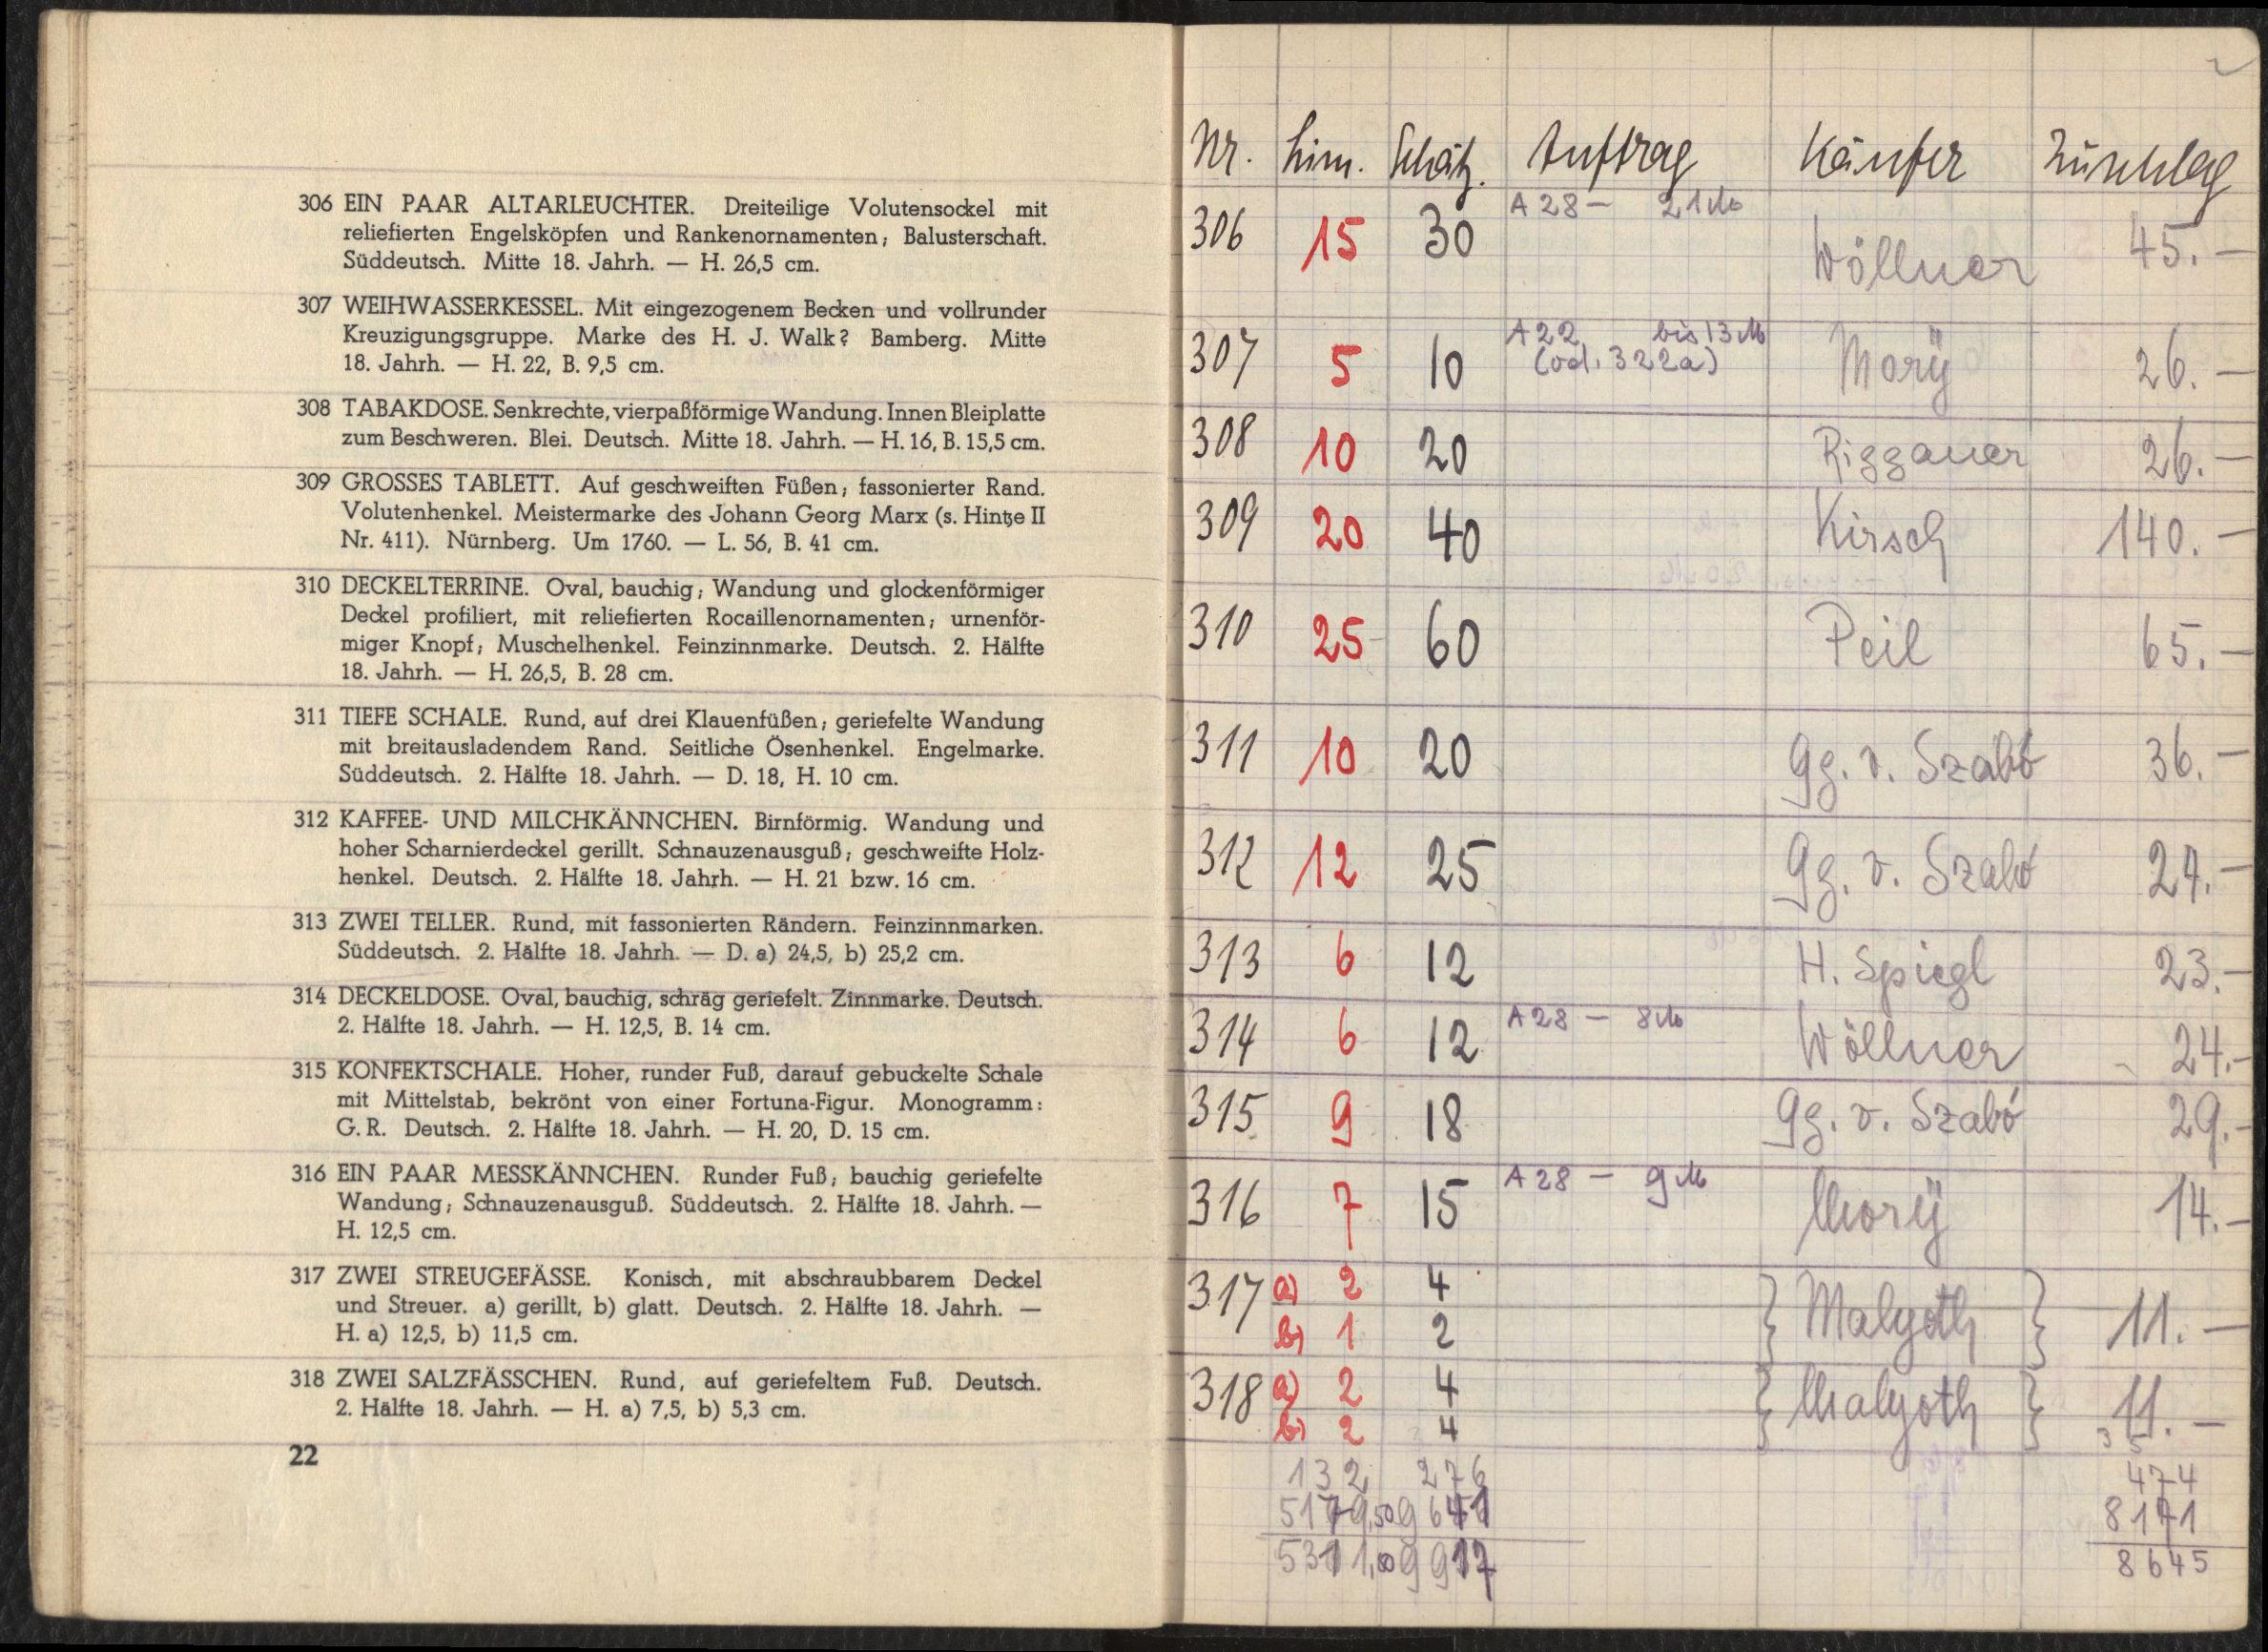 306 EIN PAAR ALTARLEUCHTER. Dreiteilige Volutensockel mit
reliefierten Engelsköpfen und Rankenornamenten; Balusterschaft.
Süddeutsch. Mitte 18. Jahrh. — H. 26,5 cm.
307 WEIHWASSERKESSEL. Mit eingezogenem Becken und vollrunder
Kreuzigungsgruppe. Marke des H. J. Walk? Bamberg. Mitte
18. Jahrh. — H. 22, B. 9,5 cm.
308 TABAKDOSE. Senkrechte, vierpaßförmige Wandung. Innen Bleiplatte
zum Beschweren. Blei. Deutsch. Mitte 18. Jahrh. — H. 16, B. 15,5 cm.
309 GROSSES TABLETT. Auf geschweiften Füßen; fassonierter Rand.
Volutenhenkel. Meistermarke des Johann Georg Marx (s. Hintze II
Nr. 411). Nürnberg. Um 1760. — L. 56, B. 41 cm.
310 DECKELTERRINE. Oval, bauchig; Wandung und glockenförmiger
Deckel profiliert, mit reliefierten Rocaillenornamenten; urnenför-
miger Knopf; Muschelhenkel. Feinzinnmarke. Deutsch. 2. Hälfte
18. Jahrh. — H. 26,5, B. 28 cm.
311 TIEFE SCHALE. Rund, auf drei Klauenfüßen; geriefelte Wandung
mit breitausladendem Rand. Seitliche Ösenhenkel. Engelmarke.
Süddeutsch. 2. Hälfte 18. Jahrh. — D. 18, H. 10 cm.
312 KAFFEE- UND MILCHKÄNNCHEN. Birnförmig. Wandung und
hoher Scharnierdeckel gerillt. Schnauzenausguß; geschweifte Holz-
henkel. Deutsch. 2. Hälfte 18. Jahrh. — H. 21 bzw. 16 cm.
313 ZWEI TELLER. Rund, mit fassonierten Rändern. Feinzinnmarken.
Süddeutsch. 2. Hälfte 18. Jahrh. — D. a) 24,5, b) 25,2 cm.
314 DECKELDOSE. Oval, bauchig, schräg geriefelt. Zinnmarke. Deutsch.
2. Hälfte 18. Jahrh. — H. 12,5, B. 14 cm.
315 KONFEKTSCHALE. Hoher, runder Fuß, darauf gebuckelte Schale
mit Mittelstab, bekrönt von einer Fortuna-Figur. Monogramm:
G. R. Deutsch. 2. Hälfte 18. Jahrh. — H. 20, D. 15 cm.
316 EIN PAAR MESSKÄNNCHEN. Runder Fuß; bauchig geriefelte
Wandung; Schnauzenausguß. Süddeutsch. 2. Hälfte 18. Jahrh. —
H. 12,5 cm.
317 ZWEI STREUGEFÄSSE. Konisch, mit abschraubbarem Deckel
und Streuer. a) gerillt, b) glatt. Deutsch. 2. Hälfte 18. Jahrh. —
H. a) 12,5, b) 11,5 cm.
318 ZWEI SALZFÄSSCHEN. Rund, auf geriefeltem Fuß. Deutsch.
2. Hälfte 18. Jahrh. — H. a) 7,5, b) 5,3 cm.
22
Nr. Lim. Schätz. Auftrag Käufer Zuschlag
A 28 — 21 M
306 15 30 Wöllner 45.—
A 22 bis 13 M
307 5 10 (od. 322a) Morÿ 26.—
308 10 20 Riggauer 26.—
309 20 40 Kirsch 140.—
310 25 60 Peil 65.—
311 10 20 Gg. v. Szabó 36.—
312 12 25 Gg. v. Szabó 24.—
313 6 12 H. Spiegl 23.—
314 6 12 A 28 — 8 M Wöllner 24.—
315 9 18 Gg. v. Szabó 29.—
316 7 15 A 28 — 9 M Morÿ 14.—
317 a) 2 4 } Malyoth } 11.—
b) 1 2
318 a) 2 4 } Malyoth } 11.—
b) 2 4
3 5
132 276 474
5179,50 9641 8171
5311,50 9917 8645